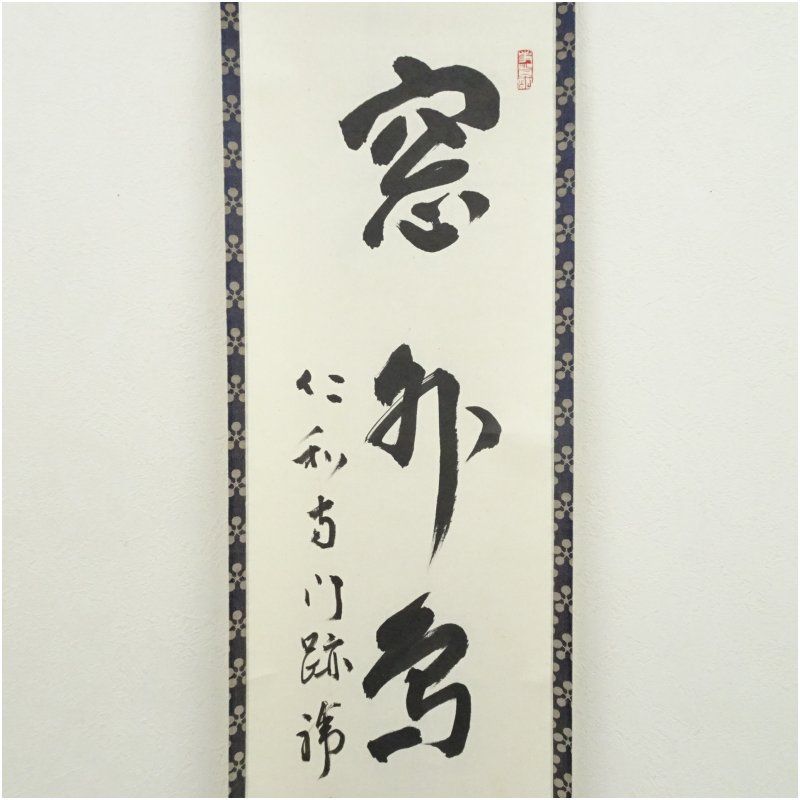 窓外鳥
仁和寺門跡